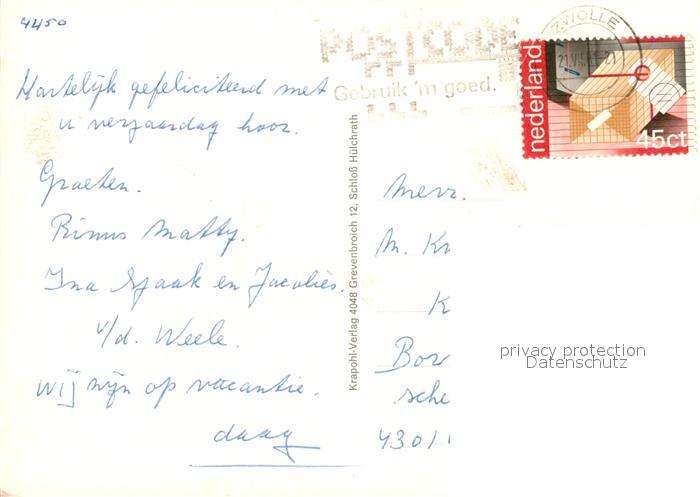 4450
POSTCODE
Gebruik 'm goed.
ZWOLLE
nederland
45ct
Hartelijk gefeliciteerd met
u verjaardag hoor.
Groeten.
Rinus Matty.
Ina Sjaak en Jacolies.
v/d. Weele.
wij zijn op vacantie.
daag
Krapohl-Verlag 4048 Grevenbroich 12, Schloß Hülchrath
Mevr.
M. Kr
K
Bor
sche
4301
privacy protection
Datenschutz